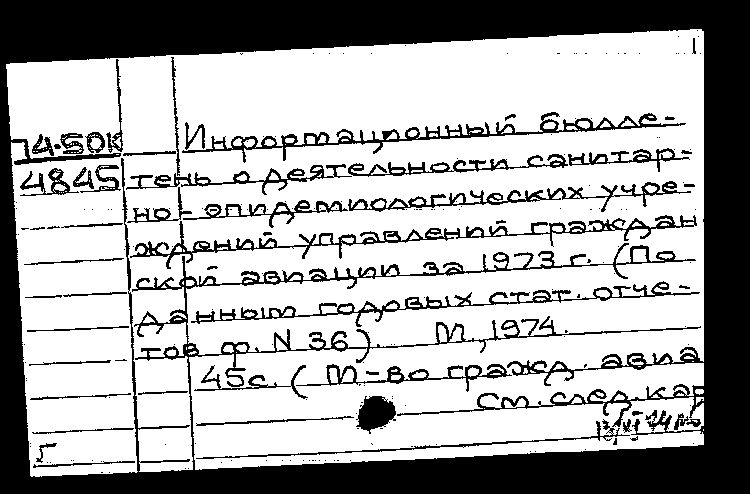 74-50К Информационный бюлле-
4845 тень о деятельности санитар-
но-эпидемиологических учре-
ждений управлений граждан
ской авиации за 1973 г. (По
данным годовых стат. отче-
тов ф. N 36). М., 1974.
45с. (М-во гражд. авиа
См. след. кар